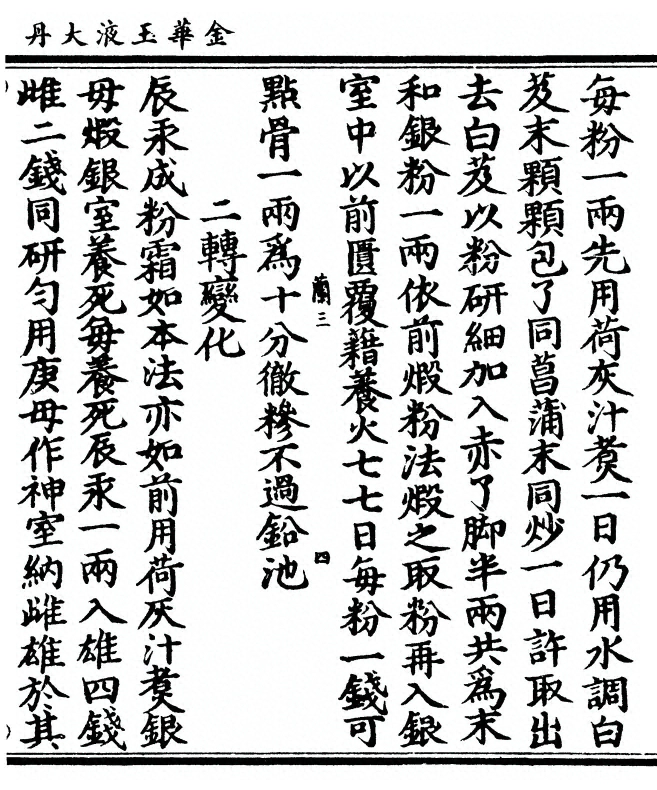 金華玉液大丹
每粉一兩先用荷灰汁煑一日仍用水調白
芨末顆顆包了同菖蒲末同炒一日許取出
去白芨以粉研細加入赤了脚半兩共爲末
和銀粉一兩依前煆粉法煆之取粉再入銀
室中以前匱覆藉養火七七日每粉一錢可
蘭三
四
點骨一兩爲十分徹糝不過鉛池
二轉變化
辰汞成粉霜如本法亦如前用荷灰汁煑銀
母煆銀室養死每養死辰汞一兩入雄四錢
雌二錢同研勻用庚母作神室納雌雄於其